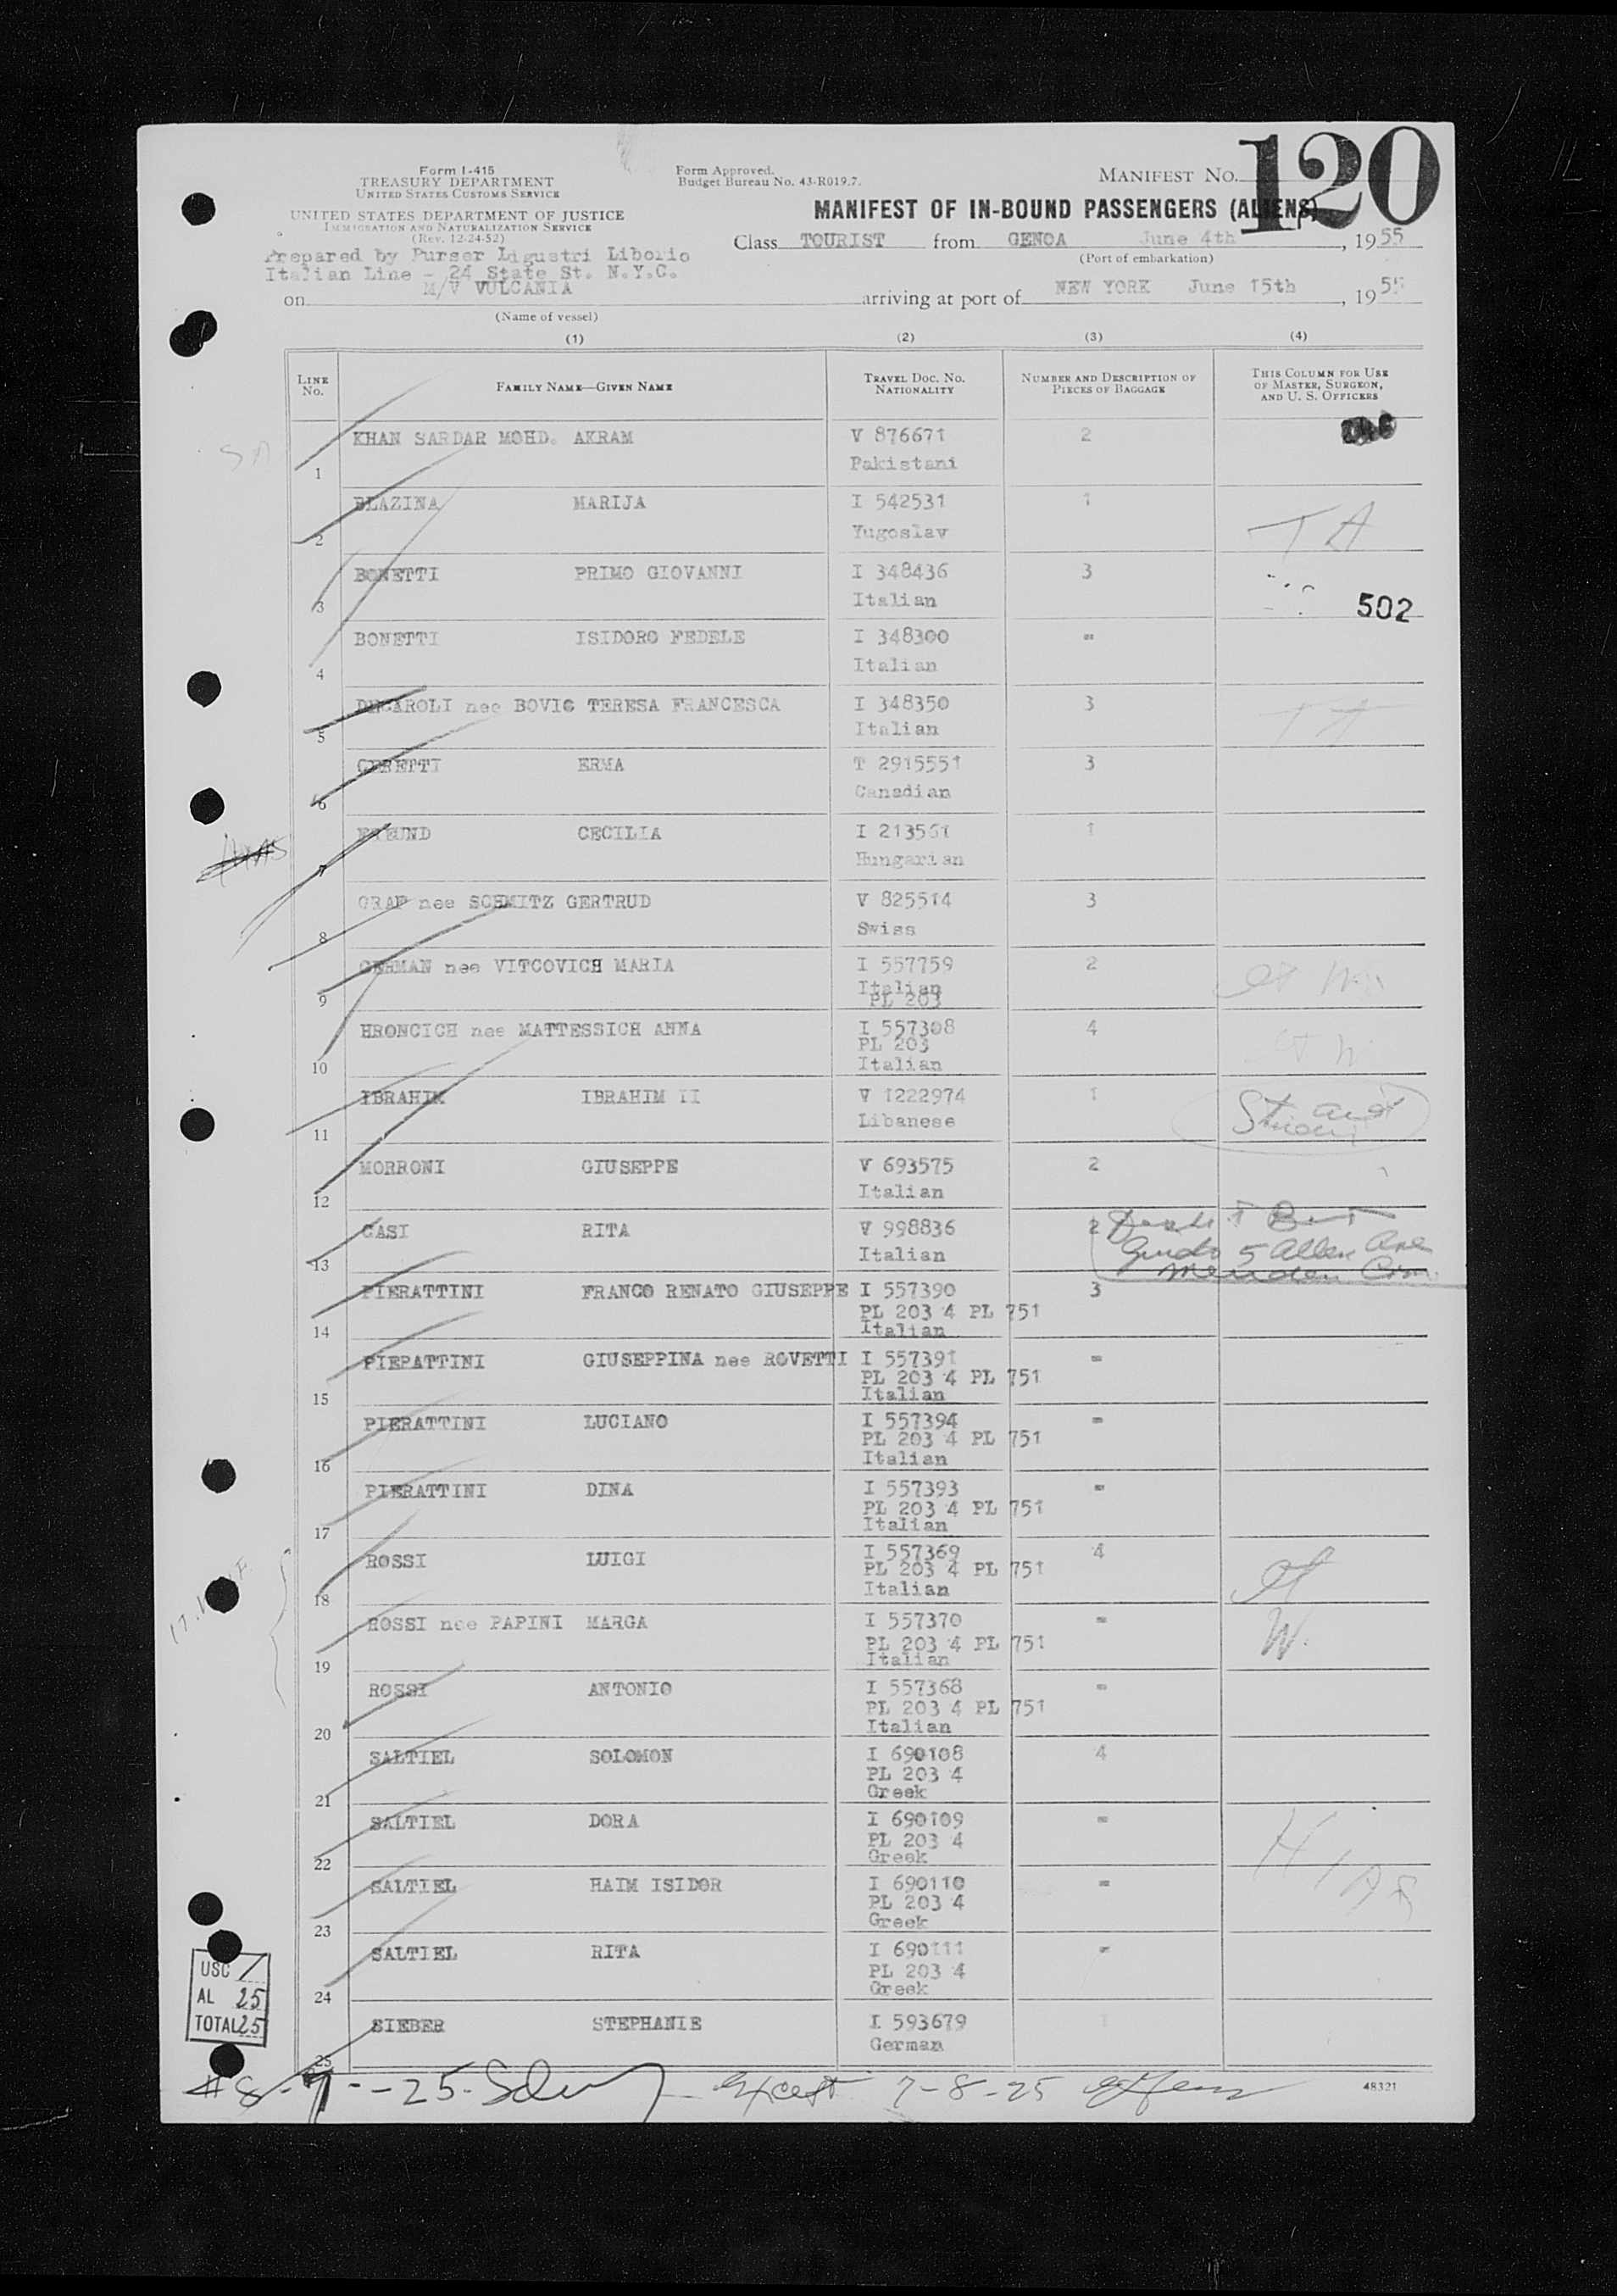 Form I-415
TREASURY DEPARTMENT
UNITED STATES CUSTOMS SERVICE
UNITED STATES DEPARTMENT OF JUSTICE
IMMIGRATION AND NATURALIZATION SERVICE
(Rev. 12-24-52)
Form Approved.
Budget Bureau No. 43-R019.7.
MANIFEST NO. 120
MANIFEST OF IN-BOUND PASSENGERS (ALIENS)
Class TOURIST from GENOA June 4th, 1955
(Port of embarkation)
Prepared by Purser Ligustri Liborio
Italian Line - 24 State St. N.Y.C.
on M/V VULCANIA arriving at port of NEW YORK June 15th, 1955
(Name of vessel)
(1) (2) (3) (4)
LINE No. FAMILY NAME—GIVEN NAME TRAVEL DOC. NO. NATIONALITY NUMBER AND DESCRIPTION OF PIECES OF BAGGAGE THIS COLUMN FOR USE OF MASTER, SURGEON, AND U. S. OFFICERS
1 KHAN SARDAR MOHD. AKRAM V 876671 2
Pakistani
2 BLAZINA MARIJA I 542531 1
Yugoslav T A
3 BONETTI PRIMO GIOVANNI I 348436 3
Italian 502
4 BONETTI ISIDORO FEDELE I 348300 =
Italian
5 DECAROLI nee BOVIO TERESA FRANCESCA I 348350 3 T A
Italian
6 CERETTI ERMA T 2915551 3
Canadian
7 CECILIA I 213561 1
Hungarian
8 GRAF nee SCHMITZ GERTRUD V 825514 3
Swiss
9 GERMAN nee VITCOVICH MARIA I 557759 2
Italian
PL 203
10 HRONCICH nee MATTESSICH ANNA I 557308 4
PL 203
Italian
11 IBRAHIM IBRAHIM II V 1222974 1
Libanese
12 MORRONI GIUSEPPE V 693575 2
Italian
13 CASI RITA V 998836 2
Italian
Guido 5 Allen Ave
Meriden Conn.
14 PIERATTINI FRANCO RENATO GIUSEPPE I 557390 3
PL 203 4 PL 751
Italian
15 PIERATTINI GIUSEPPINA nee ROVETTI I 557391 =
PL 203 4 PL 751
Italian
16 PIERATTINI LUCIANO I 557394 =
PL 203 4 PL 751
Italian
17 PIERATTINI DINA I 557393 =
PL 203 4 PL 751
Italian
18 ROSSI LUIGI I 557369 4
PL 203 4 PL 751
Italian
19 ROSSI nee PAPINI MARGA I 557370 = W.
PL 203 4 PL 751
Italian
20 ROSSI ANTONIO I 557368 =
PL 203 4 PL 751
Italian
21 SALTIEL SOLOMON I 690108 4
PL 203 4
Greek
22 SALTIEL DORA I 690109 =
PL 203 4
Greek
HIAS
23 SALTIEL HAIM ISIDOR I 690110 =
PL 203 4
Greek
24 SALTIEL RITA I 690111 =
PL 203 4
Greek
25 SIEBER STEPHANIE I 593679 1
German
USC /
AL 25
TOTAL 25
#8-7--25- except 7-8-25
48321